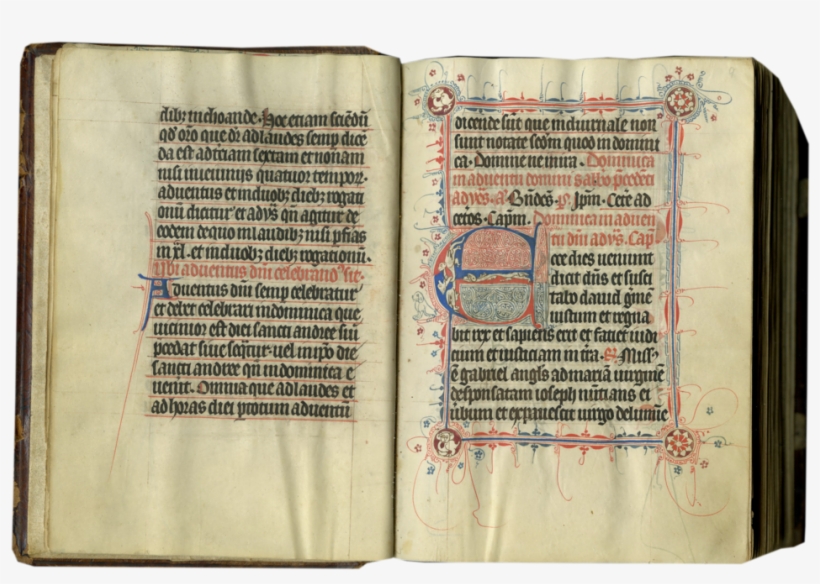 dibꝫ inchoande. Hoc etiam sciēdū
qd' oro que dr̄ ad laudes semp dice
da est ad tciam sextam et nonam
nisi in ieiunijs quatuor tempor.
aduentus et in duobꝫ diebꝫ rogati
onū dicitur et adūs qn̄ agitur de
eodem de quo in laudibꝫ nisi p̄fias
in xl. et in duobꝫ diebꝫ rogationū.
Vbi aduentus dn̄i celebrand' sit.
Aduentus dn̄i semp celebratur
et debet celebrari in dominica que
uicinior est diei sancti andree siue
p̄cedat siue seq̄tur. uel in ip̄o die
sancti andree qn̄ in dominica e
uenit. Omnia que ad laudes et
ad horas diei p̄ totum aduentū
dicende sūt que in diurnale non
sunt notate scd̄m quod in domini
ca. Domine ne in ira. Dominica
in aduentu domini sabbo p̄cedeti
ad ūs. a. Bn̄dc̄s. ps. Ip̄m. Cete ad
cetos. Capm̄. Dominica in aduen
tu dn̄i ad ūs. Cap̄
Ecce dies ueniunt
dicit dn̄s et susci
tabo dauid gm̄e
iustum et regna
bit rex et sapiens erit et faciet iudi
cium et iusticiam in tr̄a. R. Miss'
ē gabriel angl's ad mariā uirginē
desponsatam ioseph nūtians ei
ūbum et expauescit uirgo de lumīe